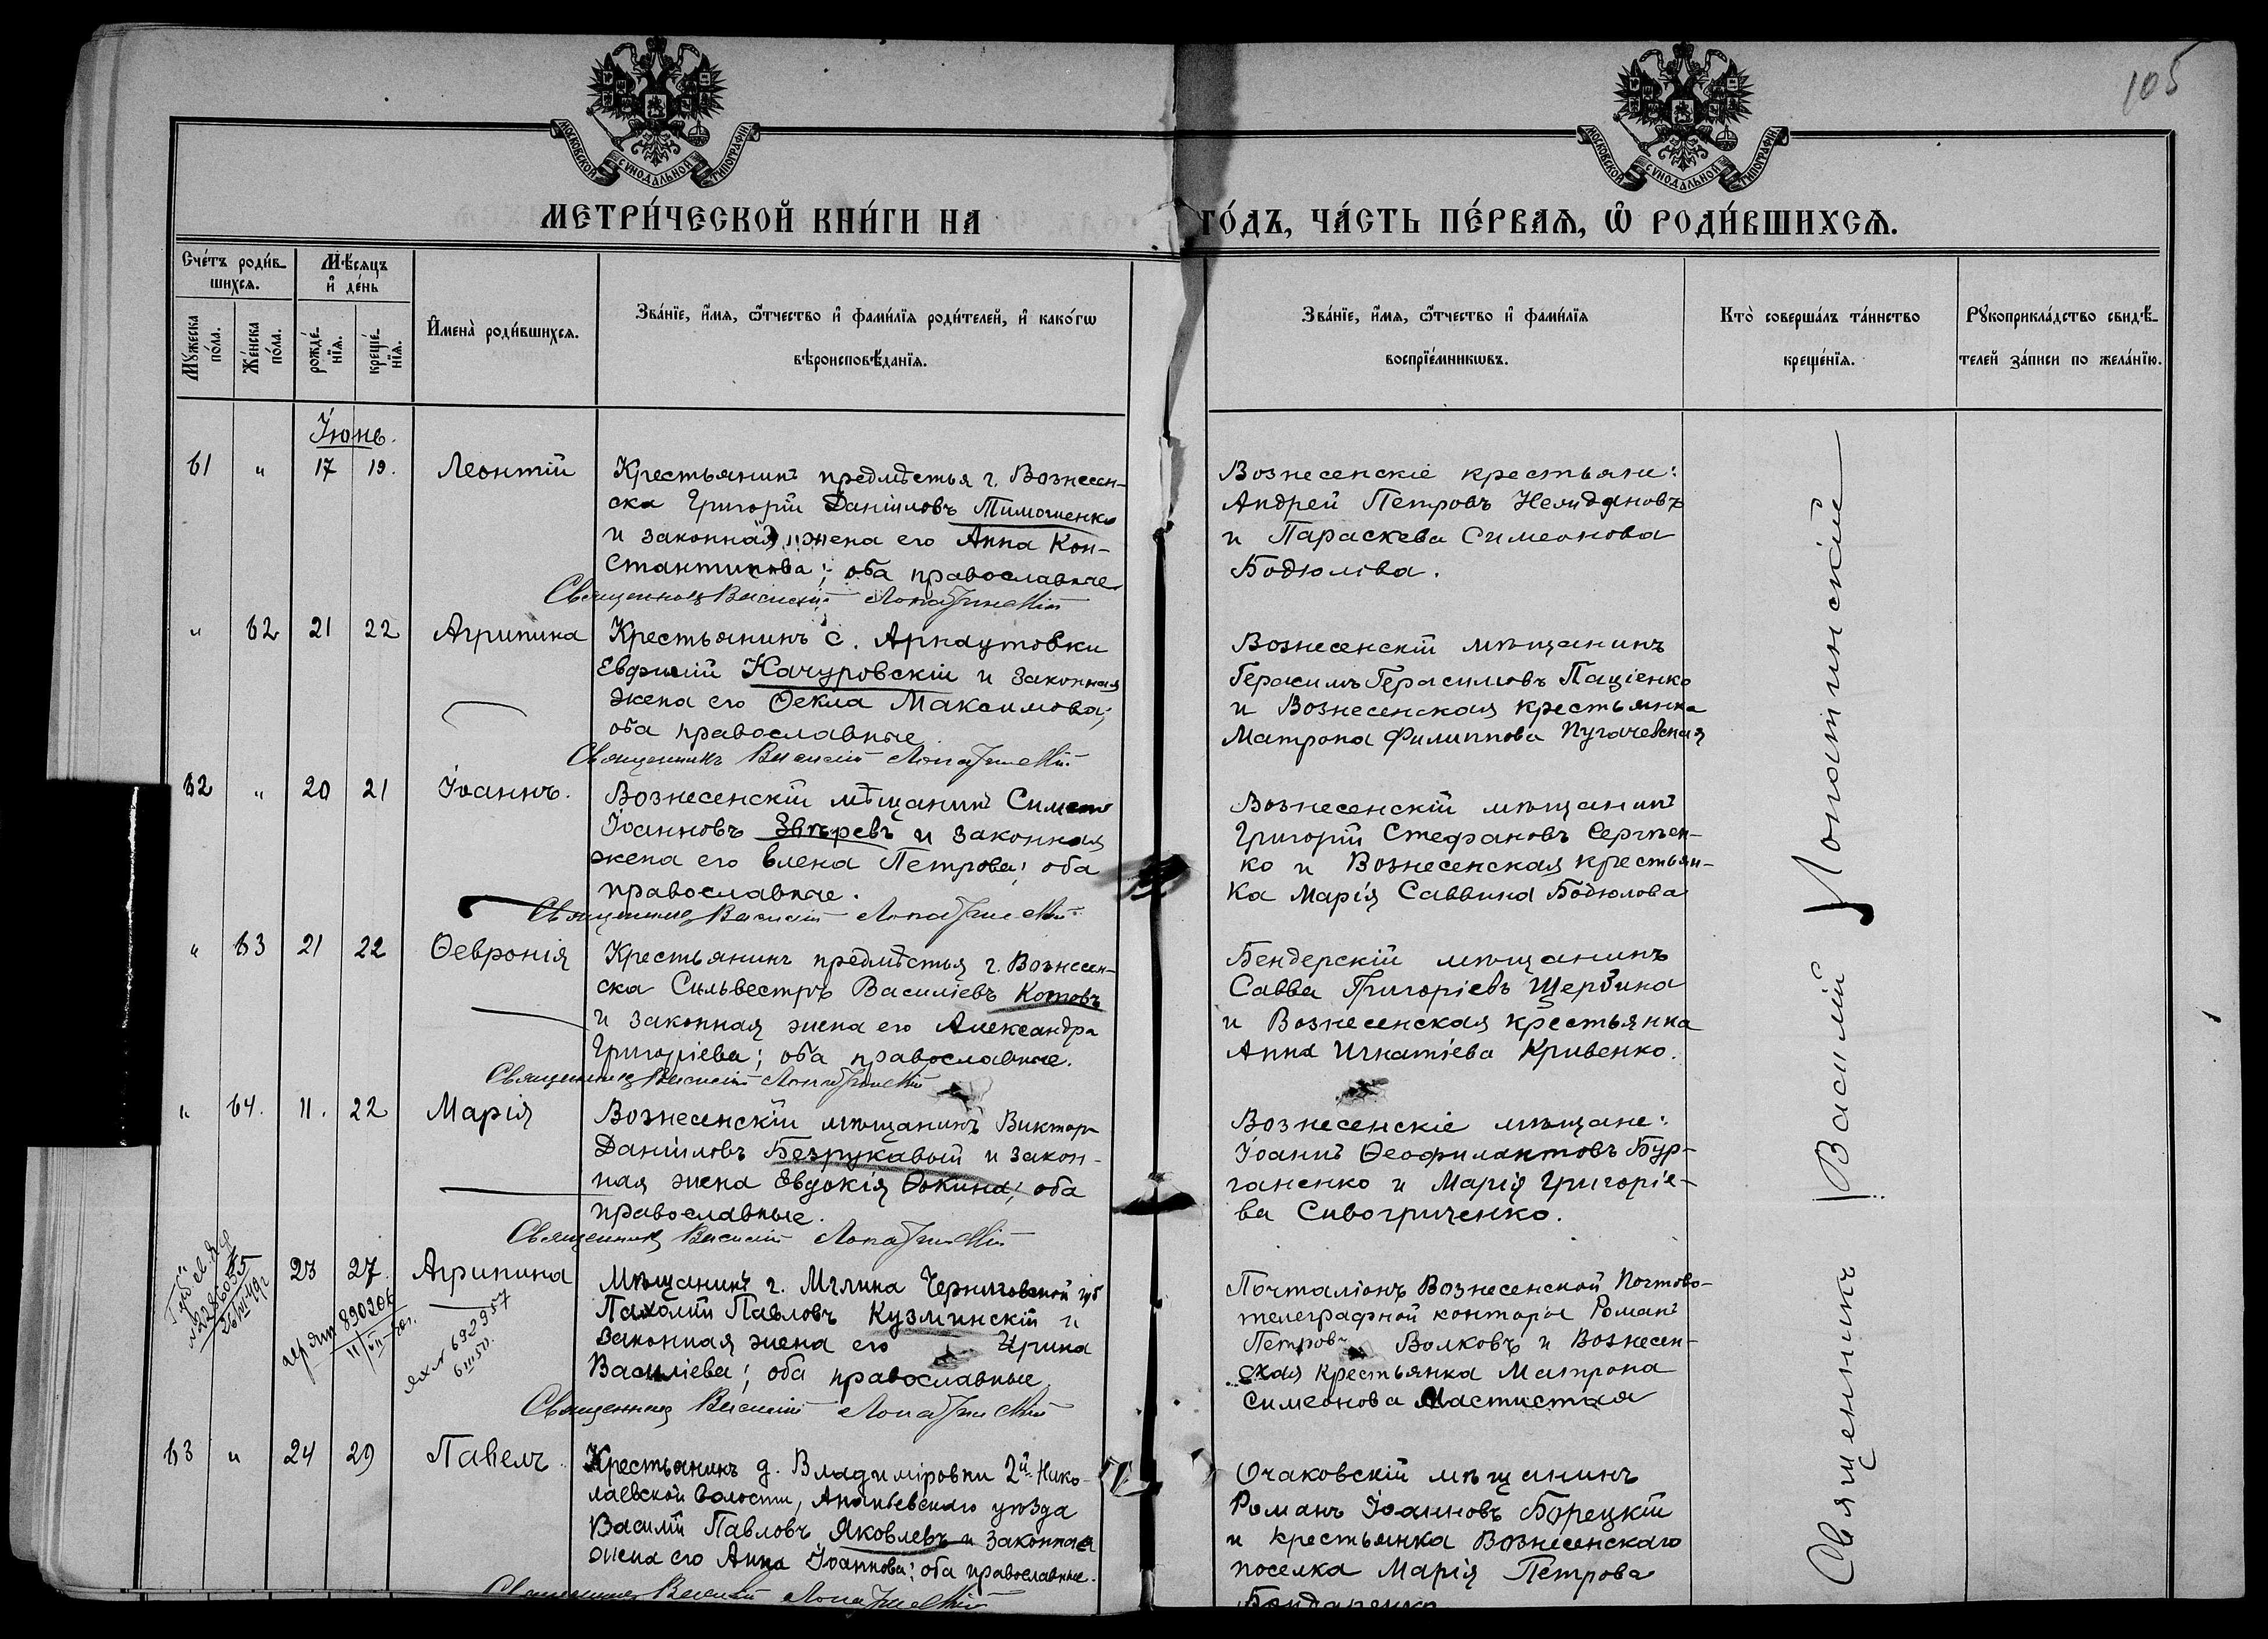 105
МОСКОВСКОЙ СѴНОДАЛЬНОЙ ТИПОГРАФІИ
МОСКОВСКОЙ СѴНОДАЛЬНОЙ ТИПОГРАФІИ
МЕТРИ́ЧЕСКОЙ КНИ́ГИ НА ГО́ДЪ, ЧА́СТЬ ПЕ́РВАѦ, Ѡ РОДИ́ВШИХСѦ.
Сче́тъ роди́в-
шихсѧ.
Мѣ́сяцъ
и҆ де́нь
Мꙋ́жеска
по́ла.
Же́нска
по́ла.
рожде́-
нїѧ.
креще́-
нїѧ.
И҆мена̀ роди́вшихсѧ.
Зва́нїе, и҆́мѧ, ѻ҆́тчество и҆ фами́лїѧ роди́телей, и҆ како́гѡ
вѣроисповѣ́данїѧ.
Зва́нїе, и҆́мѧ, ѻ҆́тчество и҆ фами́лїѧ
воспрїе́мникѡвъ.
Кто̀ соверша́лъ та́инство
креще́нїѧ.
Рꙋкоприкла́дство свидѣ́-
телей за́писи по жела́нїю.
Іюнь.
61 " 17 19. Леонтій
Крестьянинъ предмѣстья г. Вознесен-
ска Григорій Даніиловъ Тимошенко
и законная жена его Анна Кон-
стантинова; оба православные
Священникъ Василій Лопатинскій
Вознесенскіе крестьяне:
Андрей Петровъ
и Параскева Симеонова
Бодюлова.
" 62 21 22 Агрипина
Крестьянинъ с. Арнаутовки
Евфимій Качуровскій и законная
жена его Ѳекла Максимова;
оба православные
Священникъ Василій Лопатинскій
Вознесенскій мѣщанинъ
Герасимъ Герасимовъ Паціенко
и Вознесенская крестьянка
Матрона Филиппова Пугачевская
62 " 20 21 Іоаннъ.
Вознесенскій мѣщанинъ Симеонъ
Іоанновъ Звѣревъ и законная
жена его Елена Петрова; оба
православные.
Священникъ Василій Лопатинскій
Вознесенскій мѣщанинъ
Григорій Стефановъ Сергѣен-
ко и Вознесенская крестьян-
ка Марія Саввина Бодюлова
" 63 21 22 Ѳевронія
Крестьянинъ предмѣстья г. Вознесен-
ска Сильвестръ Василіевъ Котовъ
и законная жена его Александра
Григоріева; оба православные.
Священникъ Василій Лопатинскій
Бендерскій мѣщанинъ
Савва Григоріевъ Щербина
и Вознесенская крестьянка
Анна Игнатіева Кривенко.
" 64. 11. 22 Марія
Вознесенскій мѣщанинъ Викторъ
Даніиловъ Безрукавый и закон-
ная жена Евдокія Ѳокина; оба
православные.
Священникъ Василій Лопатинскій
Вознесенскіе мѣщане:
Іоаннъ Ѳеофилактовъ Бур-
ганенко и Марія Григоріе-
ва Сивогриченко.
23 27. Агрипина
890206
692957
Мѣщанинъ г. Мглина Черниговской губ
Пахомій Павловъ Кузминскій и
законная жена его Ирина
Василіева; оба православные.
Священникъ Василій Лопатинскій
Почталіонъ Вознесенской Почтово-
телеграфной конторы Романъ
Петровъ Волковъ и Вознесен-
ская крестьянка Матрона
Симеонова Мастистая
63 " 24 29 Павелъ.
Крестьянинъ д. Владиміровки 2й Нико-
лаевской волости, Ананьевскаго уѣзда
Василій Павловъ Яковлевъ и законная
жена его Анна Іоаннова; оба православные.
Священникъ Василій Лопатинскій
Очаковскій мѣщанинъ
Романъ Іоанновъ Борецкій
и крестьянка Вознесенскаго
поселка Марія Петрова
Бондаренко
Священникъ Василій Лопатинскій